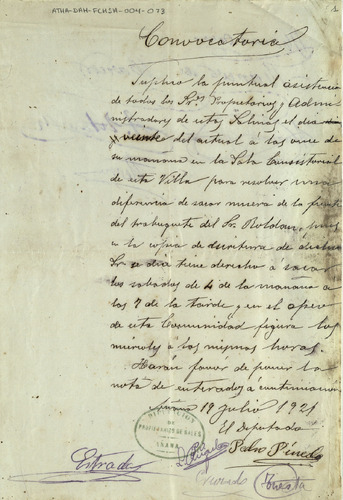 ATHA-DAH-FCHSA-004-073
1
Convocatoria
Suplico la puntual asistencia
de todos los Sres Propietarios y Admi-
nistradores de estas Salinas el dia
veinte del actual á las once de
su mañana en la Sala Consistorial
de esta Villa para resolver una
diferencia de sacar muera de la fuente
del trabuquete del Sr. Roldan, pues
en la copia de escritura de dicho
Sr. dia tiene derecho á sacar
los sabados de 4 de la mañana á
las 7 de la tarde, y en el apeo
de esta Comunidad figura los
miercoles á las mismas horas.
Harán favor de poner la
nota de enterados á continuacion
Añana 19 Julio 1921
El Diputado
Pedro Pineda
DE
PROPIETARIOS DE SALES
AÑANA